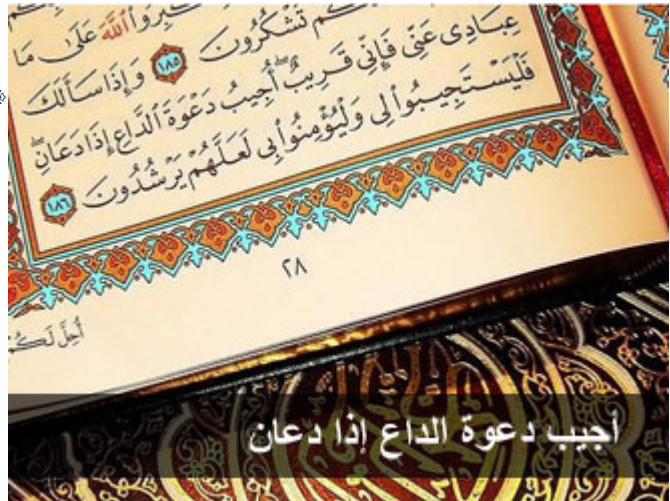 كُم تَشْكُرُونَ ١٨٥ وَإِذَا سَأَلَكَ
عِبَادِى عَنِّى فَإِنِّى قَرِيبٌ أُجِيبُ دَعْوَةَ ٱلدَّاعِ إِذَا دَعَانِ
فَلْيَسْتَجِيبُوا۟ لِى وَلْيُؤْمِنُوا۟ بِى لَعَلَّهُمْ يَرْشُدُونَ ١٨٦
٢٨
أُحِلَّ لَكُمْ
أجيب دعوة الداع إذا دعان